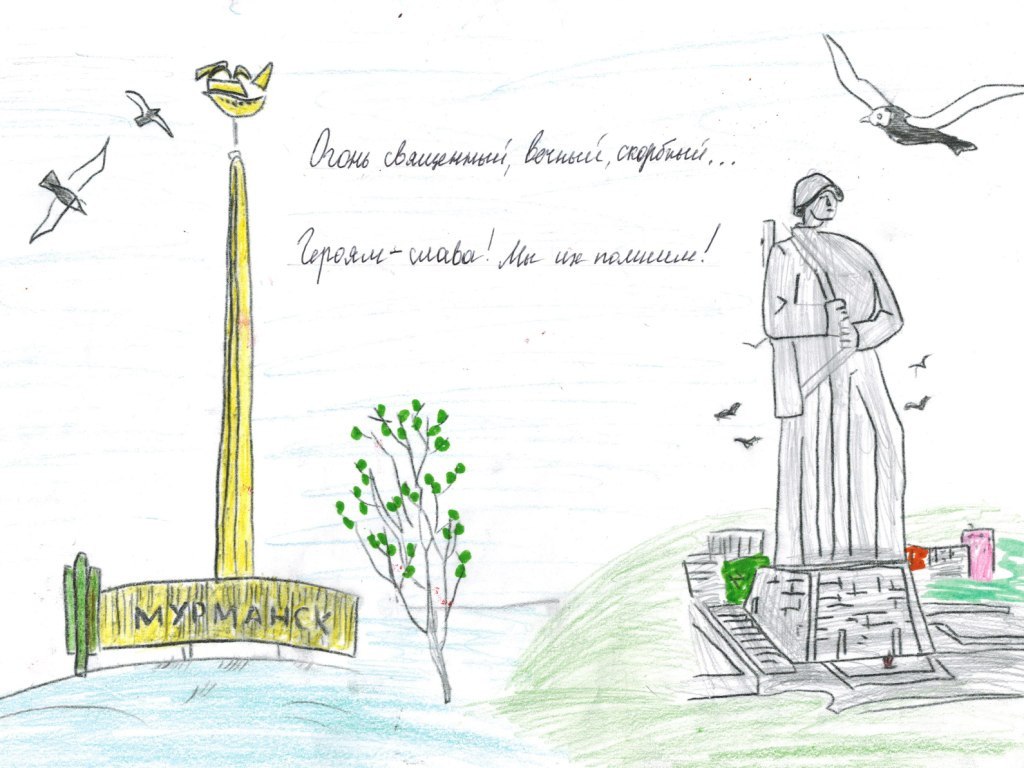 Огонь священный, вечный, скорбный...
Героям - слава! Мы их помним!
МУРМАНСК